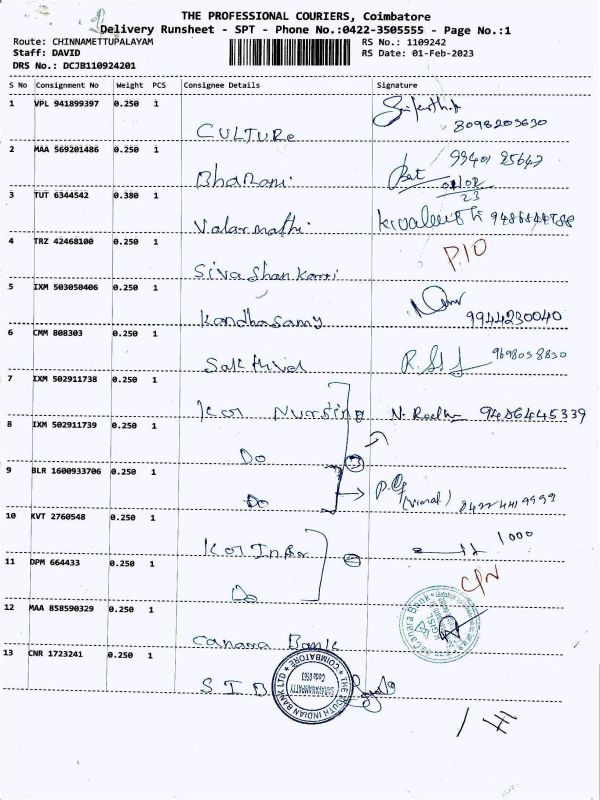 THE PROFESSIONAL COURIERS, Coimbatore
Delivery Runsheet - SPT - Phone No.:0422-3505555 - Page No.:1
Route: CHINNAMETTUPALAYAM RS No.: 1109242
Staff: DAVID RS Date: 01-Feb-2023
DRS No.: DCJB110924201
S No Consignment No Weight PCS Consignee Details Signature
1 VPL 941899397 0.250 1
CULTURe 8098203630
2 MAA 569201486 0.250 1
Bharani 99401 25647
01/02
23
3 TUT 6344542 0.380 1
Valarmathi
4 TRZ 42468100 0.250 1
Sivashankari P10
5 IXM 503050406 0.250 1
Kandhasamy 9944230040
6 CMM 808303 0.250 1
Sakthivel 9698058830
7 IXM 502911738 0.250 1
KOI Nursting 9486445339
8 IXM 502911739 0.250 1
Do
9 BLR 1600933706 0.250 1
Do (Vimal)
10 KVT 2760548 0.250 1
1000
11 DPM 664433 0.250 1
Do
12 MAA 858590329 0.250 1
Canara Bank
Canara Bank
13 CNR 1723241 0.250 1
S I B
THE SOUTH INDIAN BANK LTD
COIMBATORE